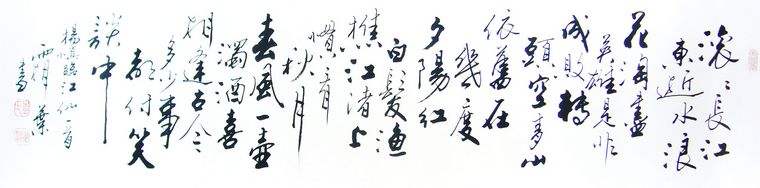 滾〻長江
東逝水浪
花淘盡
英雄是非
成敗轉
頭空青山
依舊在
幾度
夕陽紅
白髮漁
樵江渚上
慣看
秋月
春風一壺
濁酒喜
相逢古今
多少事
都付笑
談中
楊慎臨江仙一首
霜葉
書